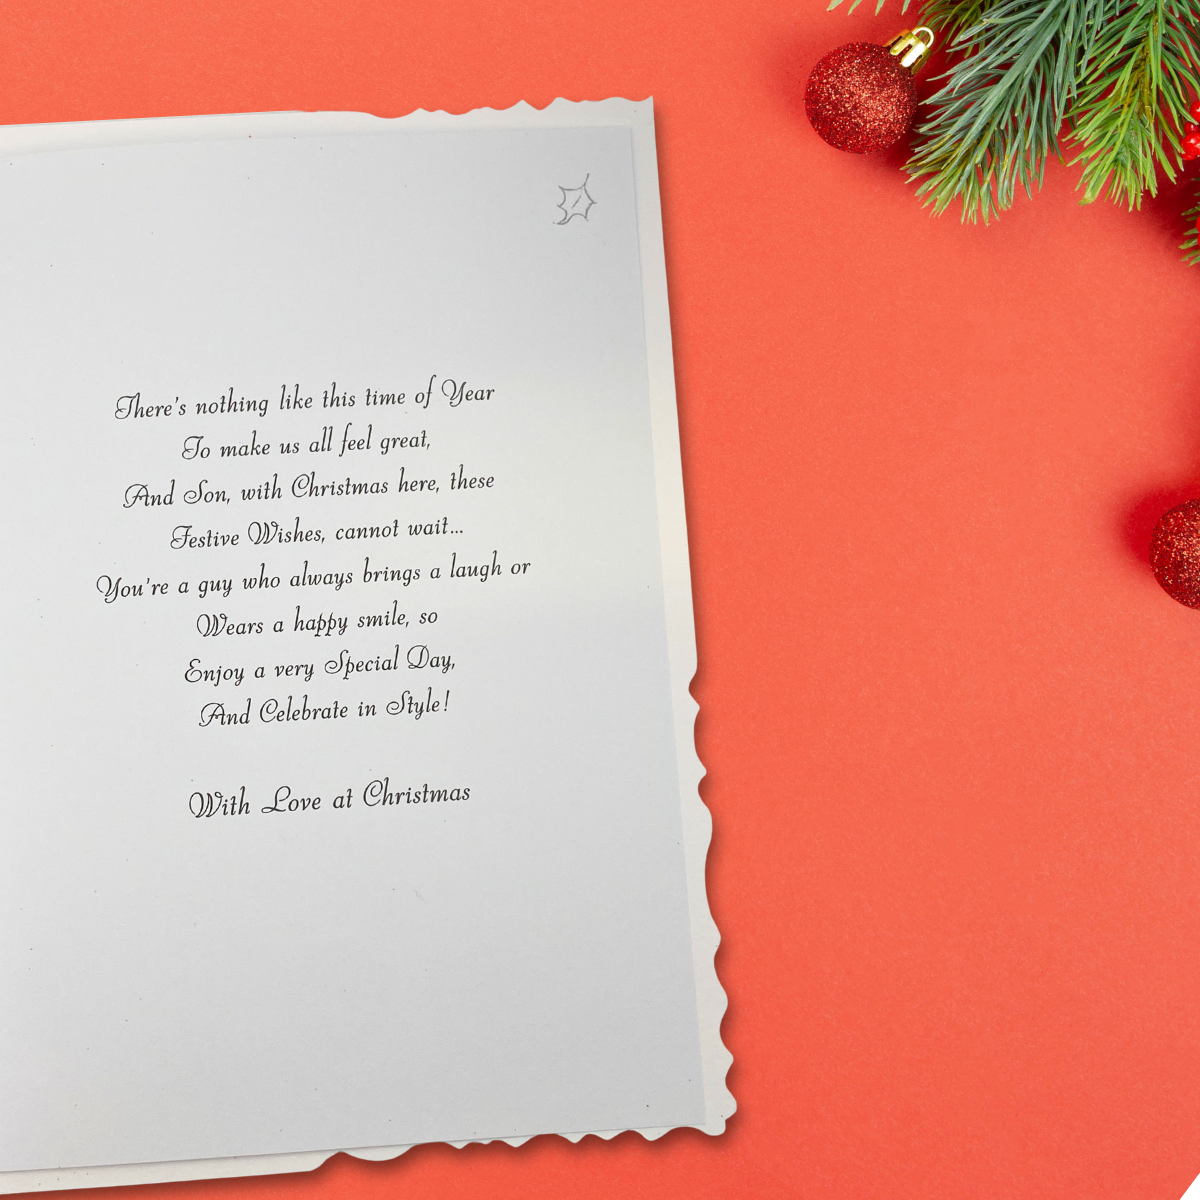 There's nothing like this time of Year
To make us all feel great,
And Son, with Christmas here, these
Festive Wishes, cannot wait...
You're a guy who always brings a laugh or
Wears a happy smile, so
Enjoy a very Special Day,
And Celebrate in Style!
With Love at Christmas